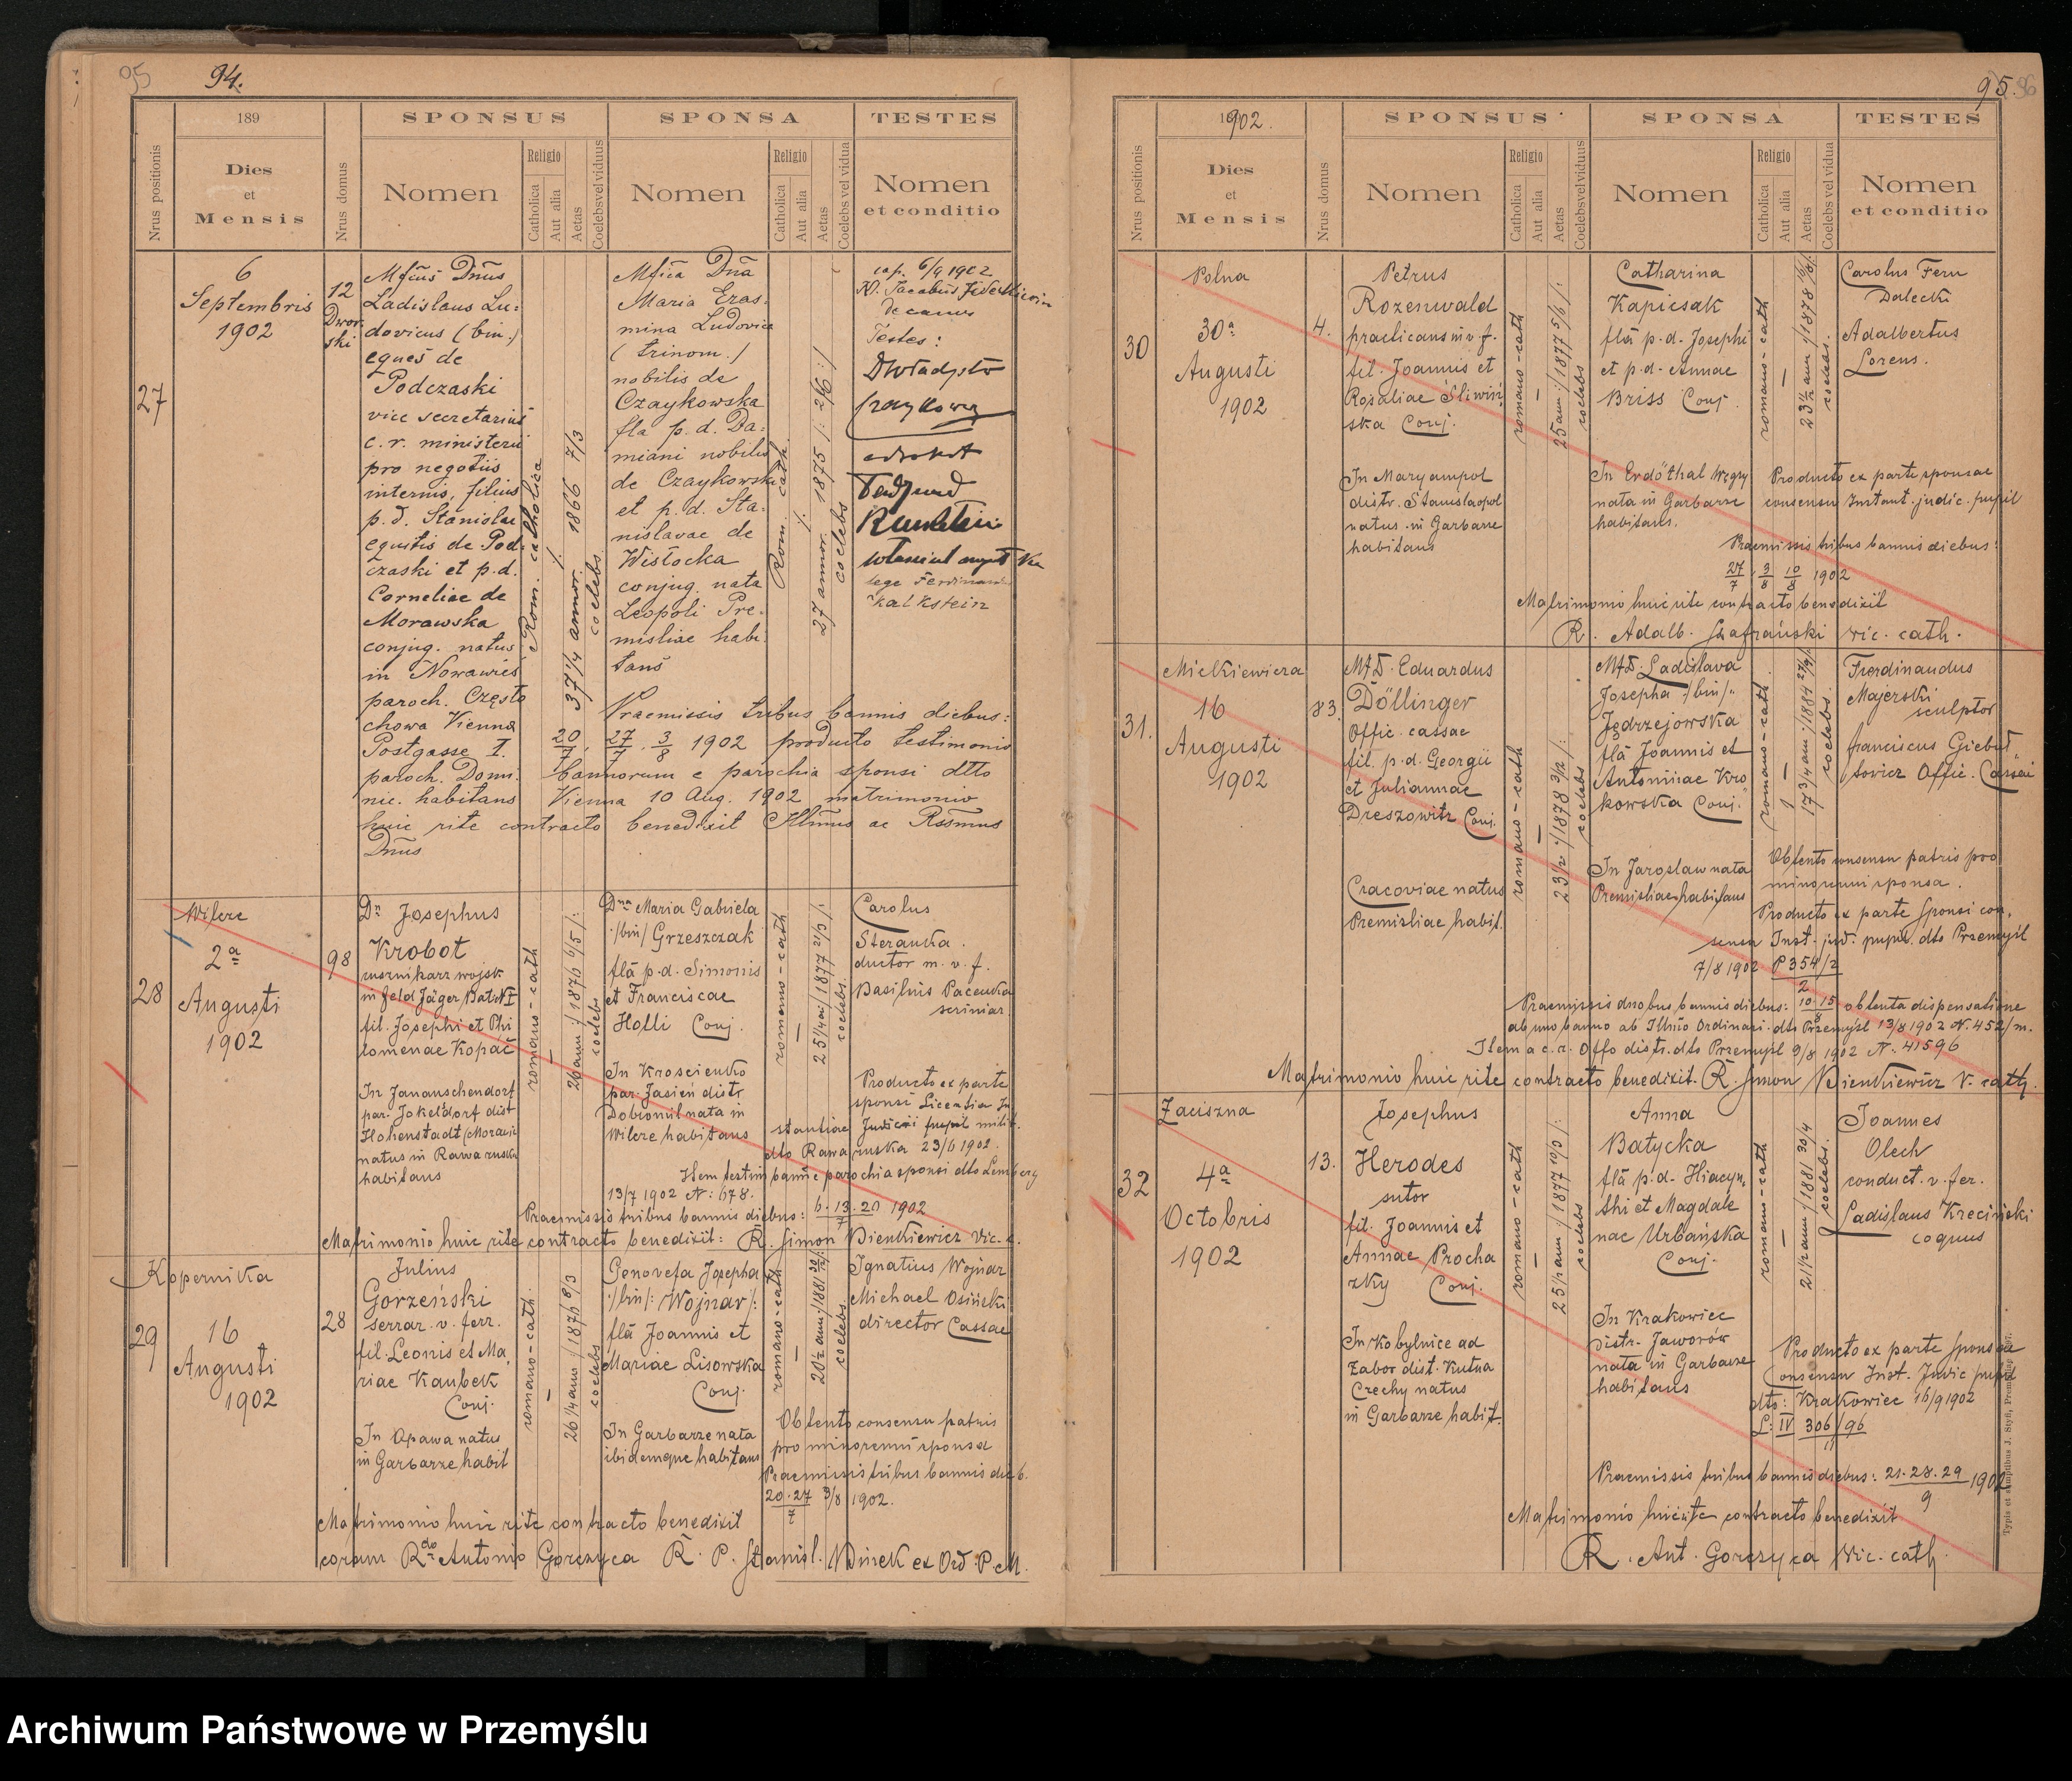 95
94.
189
SPONSUS
SPONSA
TESTES
Nrus positionis
Dies
et
Mensis
Nrus domus
Nomen
Religio
Catholica
Aut alia
Aetas
Coelebs vel viduus
Nomen
Religio
Catholica
Aut alia
Aetas
Coelebs vel vidua
Nomen
et conditio
27
6
Septembris
1902
12
Dwor
ski
Mfcus Dnus
Ladislaus Lu-
dovicus (bin.)
eques de
Podczaski
vice secretarius
c. r. ministerii
pro negotiis
internis, filius
p. d. Stanislai
equitis de Pod-
czaski et p. d.
Corneliae de
Morawska
conjug. natus
in Nowawieś
paroch. Często
chowa Vienna
Postgasse I.
paroch. Domi-
nic. habitans
Rom. catholica
37 1/4 annor. /: 1866 7/3
coelebs
Mfica Dna
Maria Eras-
mina Ludovica
(trinom.)
nobilis de
Czaykowska
fla p. d. Da-
miani nobilis
de Czaykowski
et p. d. Sta-
nislavae de
Wisłocka
conjug. nata
Leopoli Pre-
misliae habi-
tans
Rom. cath.
27 annor. /: 1875 2/6 :/
coelebs
cop. 6/9 1902
decanus
Testes:
adwokat
lege Ferdinand
Kalkstein
Praemissis tribus bannis diebus:
20/7 27/7 3/8 1902 producto testimonio
bannorum e parochia sponsi dtto
Vienna 10 Aug. 1902 matrimonio
huic rite contracto benedixit Illmus ac Rssmus
Dnus
28
Wilcze
2a
Augusti
1902
98
Dn Josephus
Krobot
in Feld Jäger Bat N I
fil. Josephi et Phi
lomenae Kopač
In Jananschendorf
par. Jokeldorf dist
Hohenstadt (Moravie
natus in Rawa ruska
habitans
romano-cath
26 ann :/ 1876 6/5 /:
coelebs
Dna Maria Gabriela
/bin/ Grzeszczak
fla p. d. Simonis
et Franciscae
Holli Conj.
In Krościenko
par. Jasień distr
Dobromil nata in
Wilcze habitans
romano-cath
25 1/4 an / 1877 21/3 /:
coelebs
Carolus
Steranka
ductor m. v. f.
Basilius Pacenka
scriniar.
Producto ex parte
sponsi Licentia In
stantiae Judicii pupil milit.
dto Rawa ruska 23/6 1902.
Item testim bannie parochia sponsi dto Lemberg
13/7 1902 N: 678.
Praemissis tribus bannis diebus: 6. 13. 20/7 1902
Matrimonio huic rite contracto benedixit: R. Simon Bieńkiewicz Vic. c.
29
Kopernika
16
Augusti
1902
28
Julius
Gorzeński
serrar. v. ferr.
fil. Leonis et Ma
riae Kaubek
Conj.
In Opawa natus
in Garbarze habit
romano-cath
26 1/4 ann / 1876 8/3
coelebs
Genovefa Josepha
/bin/: Wojnar /:
fla Joannis et
Mariae Lisowska
Conj.
In Garbarze nata
ibidemque habitans
romano-cath
20 1/2 ann :/ 1881 30/12
coelebs
Ignatius Wojnar
Michael Osiński
director Cassae
Obtento consensu patris
pro minorenni sponsa
Praemissis tribus bannis dieb.
20. 27/7 3/8 1902.
Matrimonio huic rite contracto benedixit
coram Rdo Antonio Gorczyca R. P. Stanisl. Minek ex Ord. P. M.
95. 96
1902.
SPONSUS
SPONSA
TESTES
Nrus positionis
Dies
et
Mensis
Nrus domus
Nomen
Religio
Catholica
Aut alia
Aetas
Coelebs vel viduus
Nomen
Religio
Catholica
Aut alia
Aetas
Coelebs vel vidua
Nomen
et conditio
30
Polna
30a
Augusti
1902
4.
Petrus
Rozenwald
practicans in v. f.
fil. Joannis et
Rosaliae Śliwiń
ska Conj.
In Maryampol
distr. Stanislaopol
natus in Garbarze
habitans
romano-cath
25 ann :/ 1877 5/6 /:
coelebs
Catharina
Kapicsak
fla p. d. Josephi
et p. d. Annae
Briss Conj.
In Erdöthal Węgry
nata in Garbarze
habitans.
romano-cath
23 1/2 ann :/ 1878
coelebs.
Carolus Fern
Dalecki
Adalbertus
Lorens.
Producto ex parte sponsae
consensu Instant. judic. pupil
Praemissis tribus bannis diebus:
27/7 3/8 10/8 1902
Matrimonio huic rite contracto benedixit
R. Adalb. Szafrański vic. cath.
31.
Mickiewicza
16
Augusti
1902
83.
MfD. Eduardus
Döllinger
Offic. cassae
fil. p. d. Georgii
et Juliannae
Dreszowitz Conj.
Cracoviae natus
Premisliae habit.
romano-cath
23 1/2 :/ 1878 3/2 /:
coelebs
MfD. Ladislava
Josepha /bin/
Jędrzejowska
fla Joannis et
Antoninae Kro
kowska Conj.
In Jaroslaw nata
Premisliae habitans
romano-cath
17 3/4 ann :/ 1884 27/9 /:
coelebs.
Ferdinandus
Majerski
sculptor
Franciscus Giebuł
towicz Offic. Cassae
Obtento consensu patris pro
minorenni sponsa.
Producto ex parte Sponsi con-
sensu Inst. jud. pupil. dto Przemyśl
7/8 1902 P 354/2
2
Praemissis duobus bannis diebus: 10. 15/8 obtenta dispensatione
ab uno banno ab Illmo Ordinari. dto Przemyśl 13/8 1902 N. 452/m.
Item a c. r. Offo distr. dto Przemyśl 9/8 1902 N. 41596
Matrimonio huic rite contracto benedixit. R. Simon Bieńkiewicz V. cath.
32
Zaciszna
4a
Octobris
1902
13.
Josephus
Herodes
sutor
fil. Joannis et
Annae Procha
zky Conj.
In Kobylnice ad
Zabor dist. Kutna
Czechy natus
in Garbarze habit.
romano-cath
25 1/2 ann :/ 1877 10/3 /:
coelebs
Anna
Batycka
fla p. d. Hiacyn-
thi et Magdale
nae Urbańska
Conj.
In Krakowiec
distr. Jaworów
nata in Garbarze
habitans
romano-cath
21 1/2 ann :/ 1881 30/4
coelebs.
Joannes
Olech
conduct. v. fer.
Ladislaus Kreciński
coquus
Producto ex parte Sponsae
Consensu Inst. Judic pupil
dto: Krakowiec 16/9 1902
L: IV 306/96
11
Praemissis tribus bannis diebus: 21. 28. 29/9 1902
Matrimonio huic rite contracto benedixit
R. Ant. Gorczyca Vic. cath.
Typis et sumptibus J. Styfi, Premisliae 1897.
Archiwum Państwowe w Przemyślu